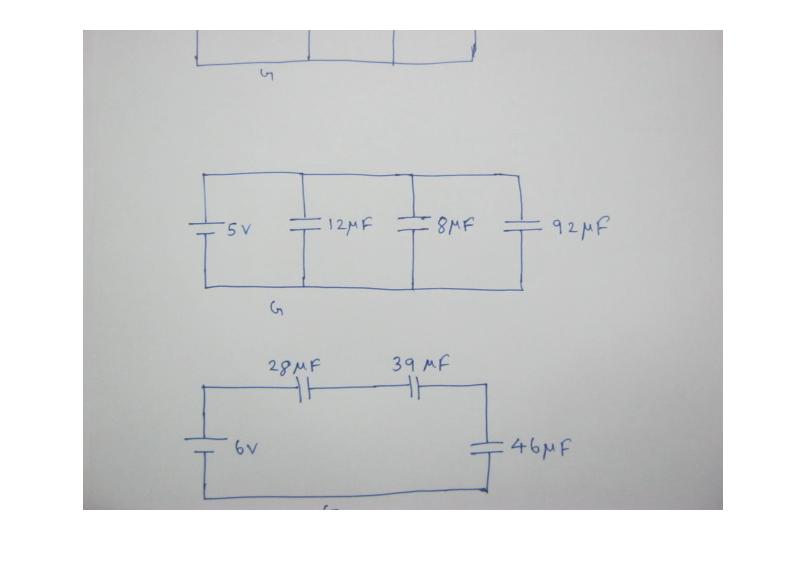 G
5V 12μF 8μF 92μF
G
28μF 39μF
6V 46μF